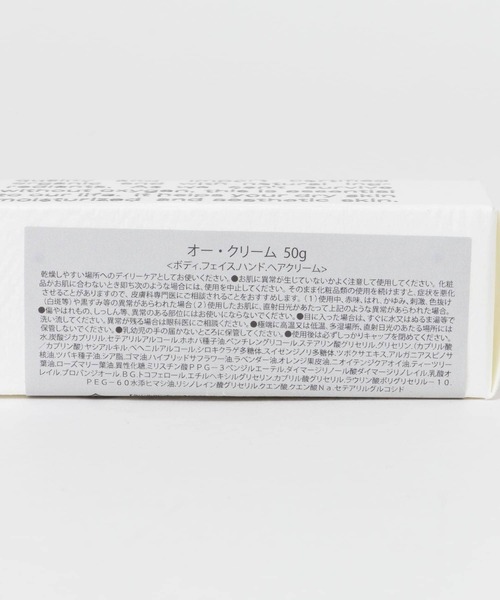 radiants. As we can't survive
without oxygen, this is essential
to our life. It helps your dry skin
moisturized and aesthetic skin.
オー・クリーム 50g
<ボディ,フェイス,ハンド,ヘアクリーム>
乾燥しやすい場所へのデイリーケアとしてお使いください。●お肌に異常が生じていないかよく注意して使用してください。化粧
品がお肌に合わないとき即ち次のような場合には、使用を中止してください。そのまま化粧品類の使用を続けますと、症状を悪化
させることがありますので、皮膚科専門医にご相談されることをおすすめします。(1)使用中、赤味、はれ、かゆみ、刺激、色抜け
(白斑等)や黒ずみ等の異常があらわれた場合(2)使用したお肌に、直射日光があたって上記のような異常があらわれた場合。
●傷やはれもの、しっしん等、異常のある部位にはお使いにならないでください。●目に入った場合は、すぐに水又はぬるま湯等で
洗い流してください。異常が残る場合は眼科医にご相談ください。●極端に高温又は低温、多湿場所、直射日光のあたる場所には
保管しないでください。●乳幼児の手の届かないところに保管してください。●使用後は必ずしっかりキャップを閉めてください。
水,炭酸ジカプリリル,セテアリルアルコール,ホホバ種子油,ペンチレングリコール,ステアリン酸グリセリル,グリセリン,(カプリル酸
/カプリン酸)ヤシアルキル,ベヘニルアルコール,シロキクラゲ多糖体,スイゼンジノリ多糖体,ツボクサエキス,アルガニアスピノサ
核油,ツバキ種子油,シア脂,ゴマ油,ハイブリッドサフラワー油,ラベンダー油,オレンジ果皮油,ニオイテンジクアオイ油,ティーツリー
葉油,ローズマリー葉油,異性化糖,ミリスチン酸PPG-3ベンジルエーテル,ダイマージリノール酸ダイマージリノレイル,乳酸オ
レイル,プロパンジオール,BG,トコフェロール,エチルヘキシルグリセリン,カプリル酸グリセリル,ラウリン酸ポリグリセリル-10,
PEG-60水添ヒマシ油,リシノレイン酸グリセリル,クエン酸,クエン酸Na,セテアリルグルコシド